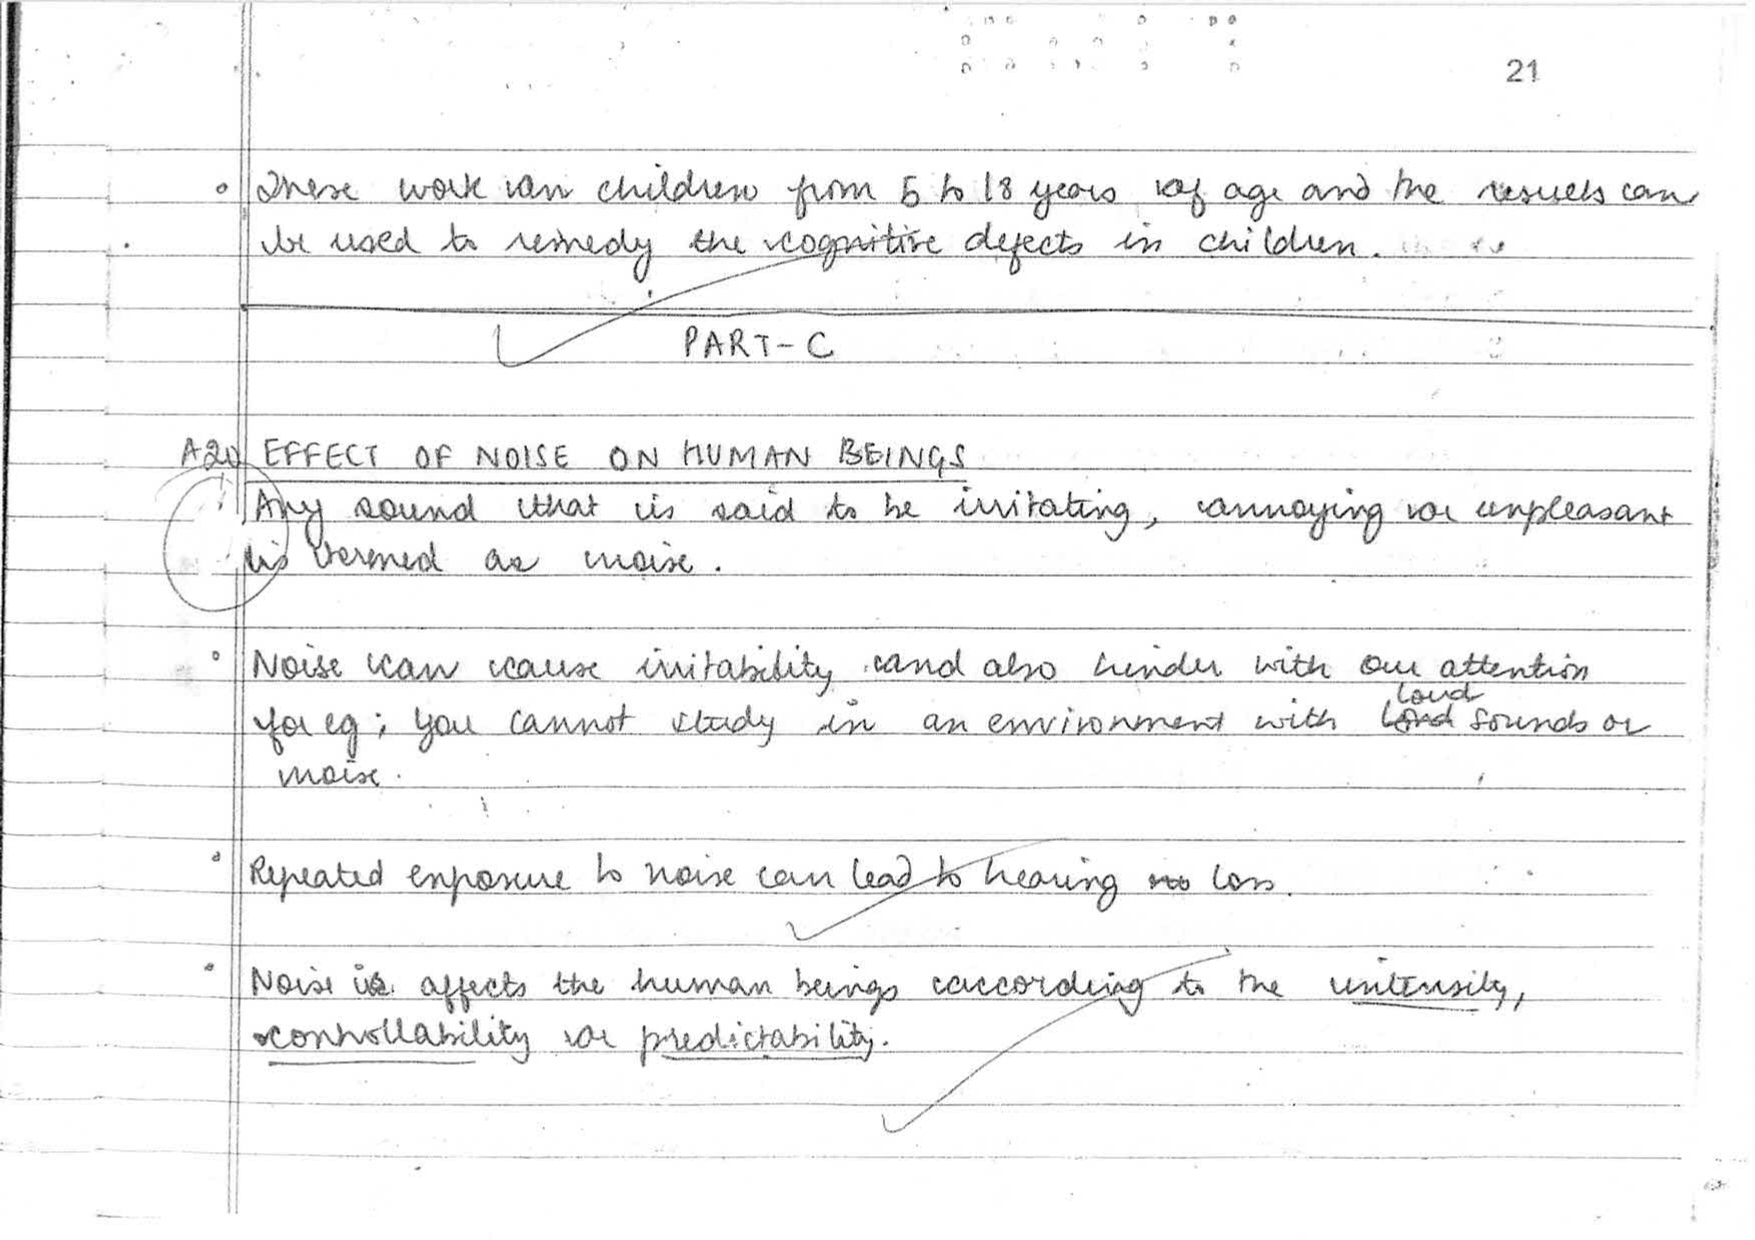 21
These work on children from 5 to 18 years of age and the results can
be used to remedy the cognitive defects in children.
PART-C
A20 EFFECT OF NOISE ON HUMAN BEINGS
Any sound that is said to be irritating, annoying or unpleasant
is termed as noise.
Noise can cause irritability and also hinder with our attention
for eg; you cannot study in an environment with loud sounds or
noise.
Repeated exposure to noise can lead to hearing loss.
Noise affects the human beings according to the intensity,
controllability or predictability.